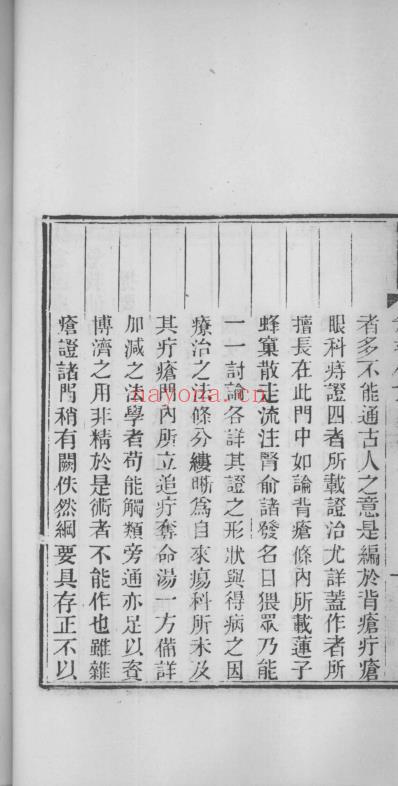 者多不能通古人之意是編於背瘡疔瘡
眼科痔證四者所載證治尤詳蓋作者所
擅長在此門中如論背瘡條內所載蓮子
蜂窠散走流注腎俞諸發名目猥眾乃能
一一討論各詳其證之形狀與得病之因
療治之法條分縷晰爲自來瘍科所未及
其疔瘡門內所立追疔奪命湯一方備詳
加減之法學者苟能觸類旁通亦足以資
博濟之用非精於是術者不能作也雖雜
瘡證諸門稍有闕佚然綱要具存正不以
nayona.cn